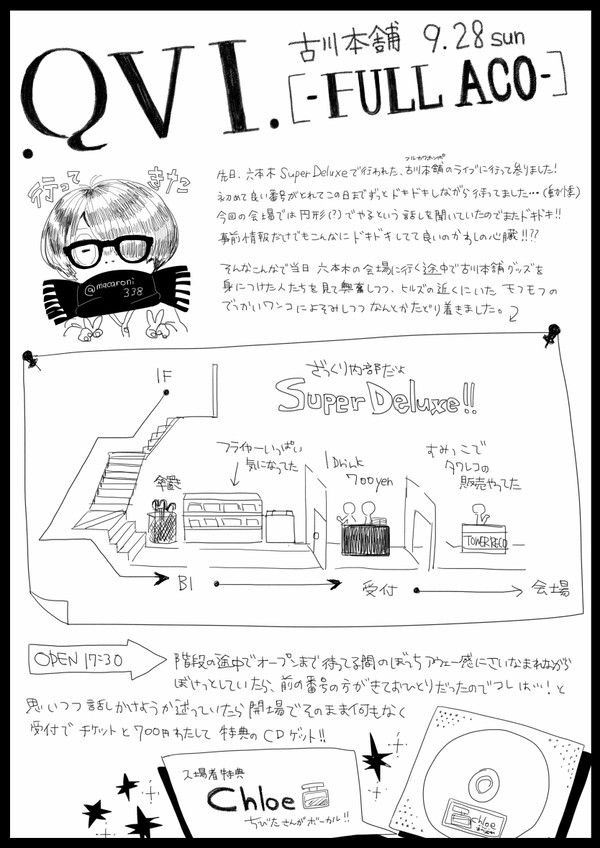 QVI.
古川本舗 9.28 sun
[-FULL ACO-]
行って きた
@macaroni
338
フルカワホンポ
先日、六本木 Super Deluxeで行われた、古川本舗のライブに行って参りました!
初めて良い番号がとれてこの日までずっとドキドキしながら待ってました…(動悸)
今回の会場では円形(?)でやるという話しを聞いていたのでまたドキドキ!!
事前情報だけでもこんなにドキドキしてて良いのかわしの心臓!!??
そんなこんなで当日 六本木の会場に行く途中で古川本舗グッズを
身につけた人たちを見て興奮しつつ、ヒルズの近くにいた モフモフの
でっかいワンコによそみしつつ なんとかたどり着きました。
ざっくり内部だよ
Super Deluxe!!
1F
傘置き
フライヤーいっぱい
気になってた
1Drink
700yen
すみっこで
タワレコの
販売やってた
TOWER RECO
B1
受付
会場
OPEN 17:30
階段の途中でオープンまで待ってる間のぼっちアウェー感にさいなまれながら
ぼけっとしていたら、前の番号の方がきておひとりだったのでコレは…!と
思いつつ話しかけようか迷っていたら開場でそのまま何もなく
受付でチケットと700円わたして 特典のCDゲット!!
入場者特典
Chloe
ちびたさんがボーカル!!
Chloe